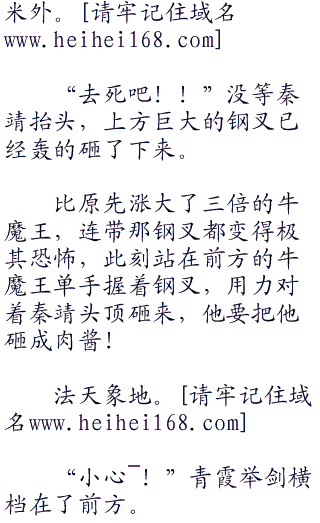 米外。[请牢记住域名
www.heihei168.com]
“去死吧！！”没等秦
靖抬头，上方巨大的钢叉已
经轰的砸了下来。
比原先涨大了三倍的牛
魔王，连带那钢叉都变得极
其恐怖，此刻站在前方的牛
魔王单手握着钢叉，用力对
着秦靖头顶砸来，他要把他
砸成肉酱！
法天象地。[请牢记住域
名www.heihei168.com]
“小心¯！”青霞举剑横
档在了前方。